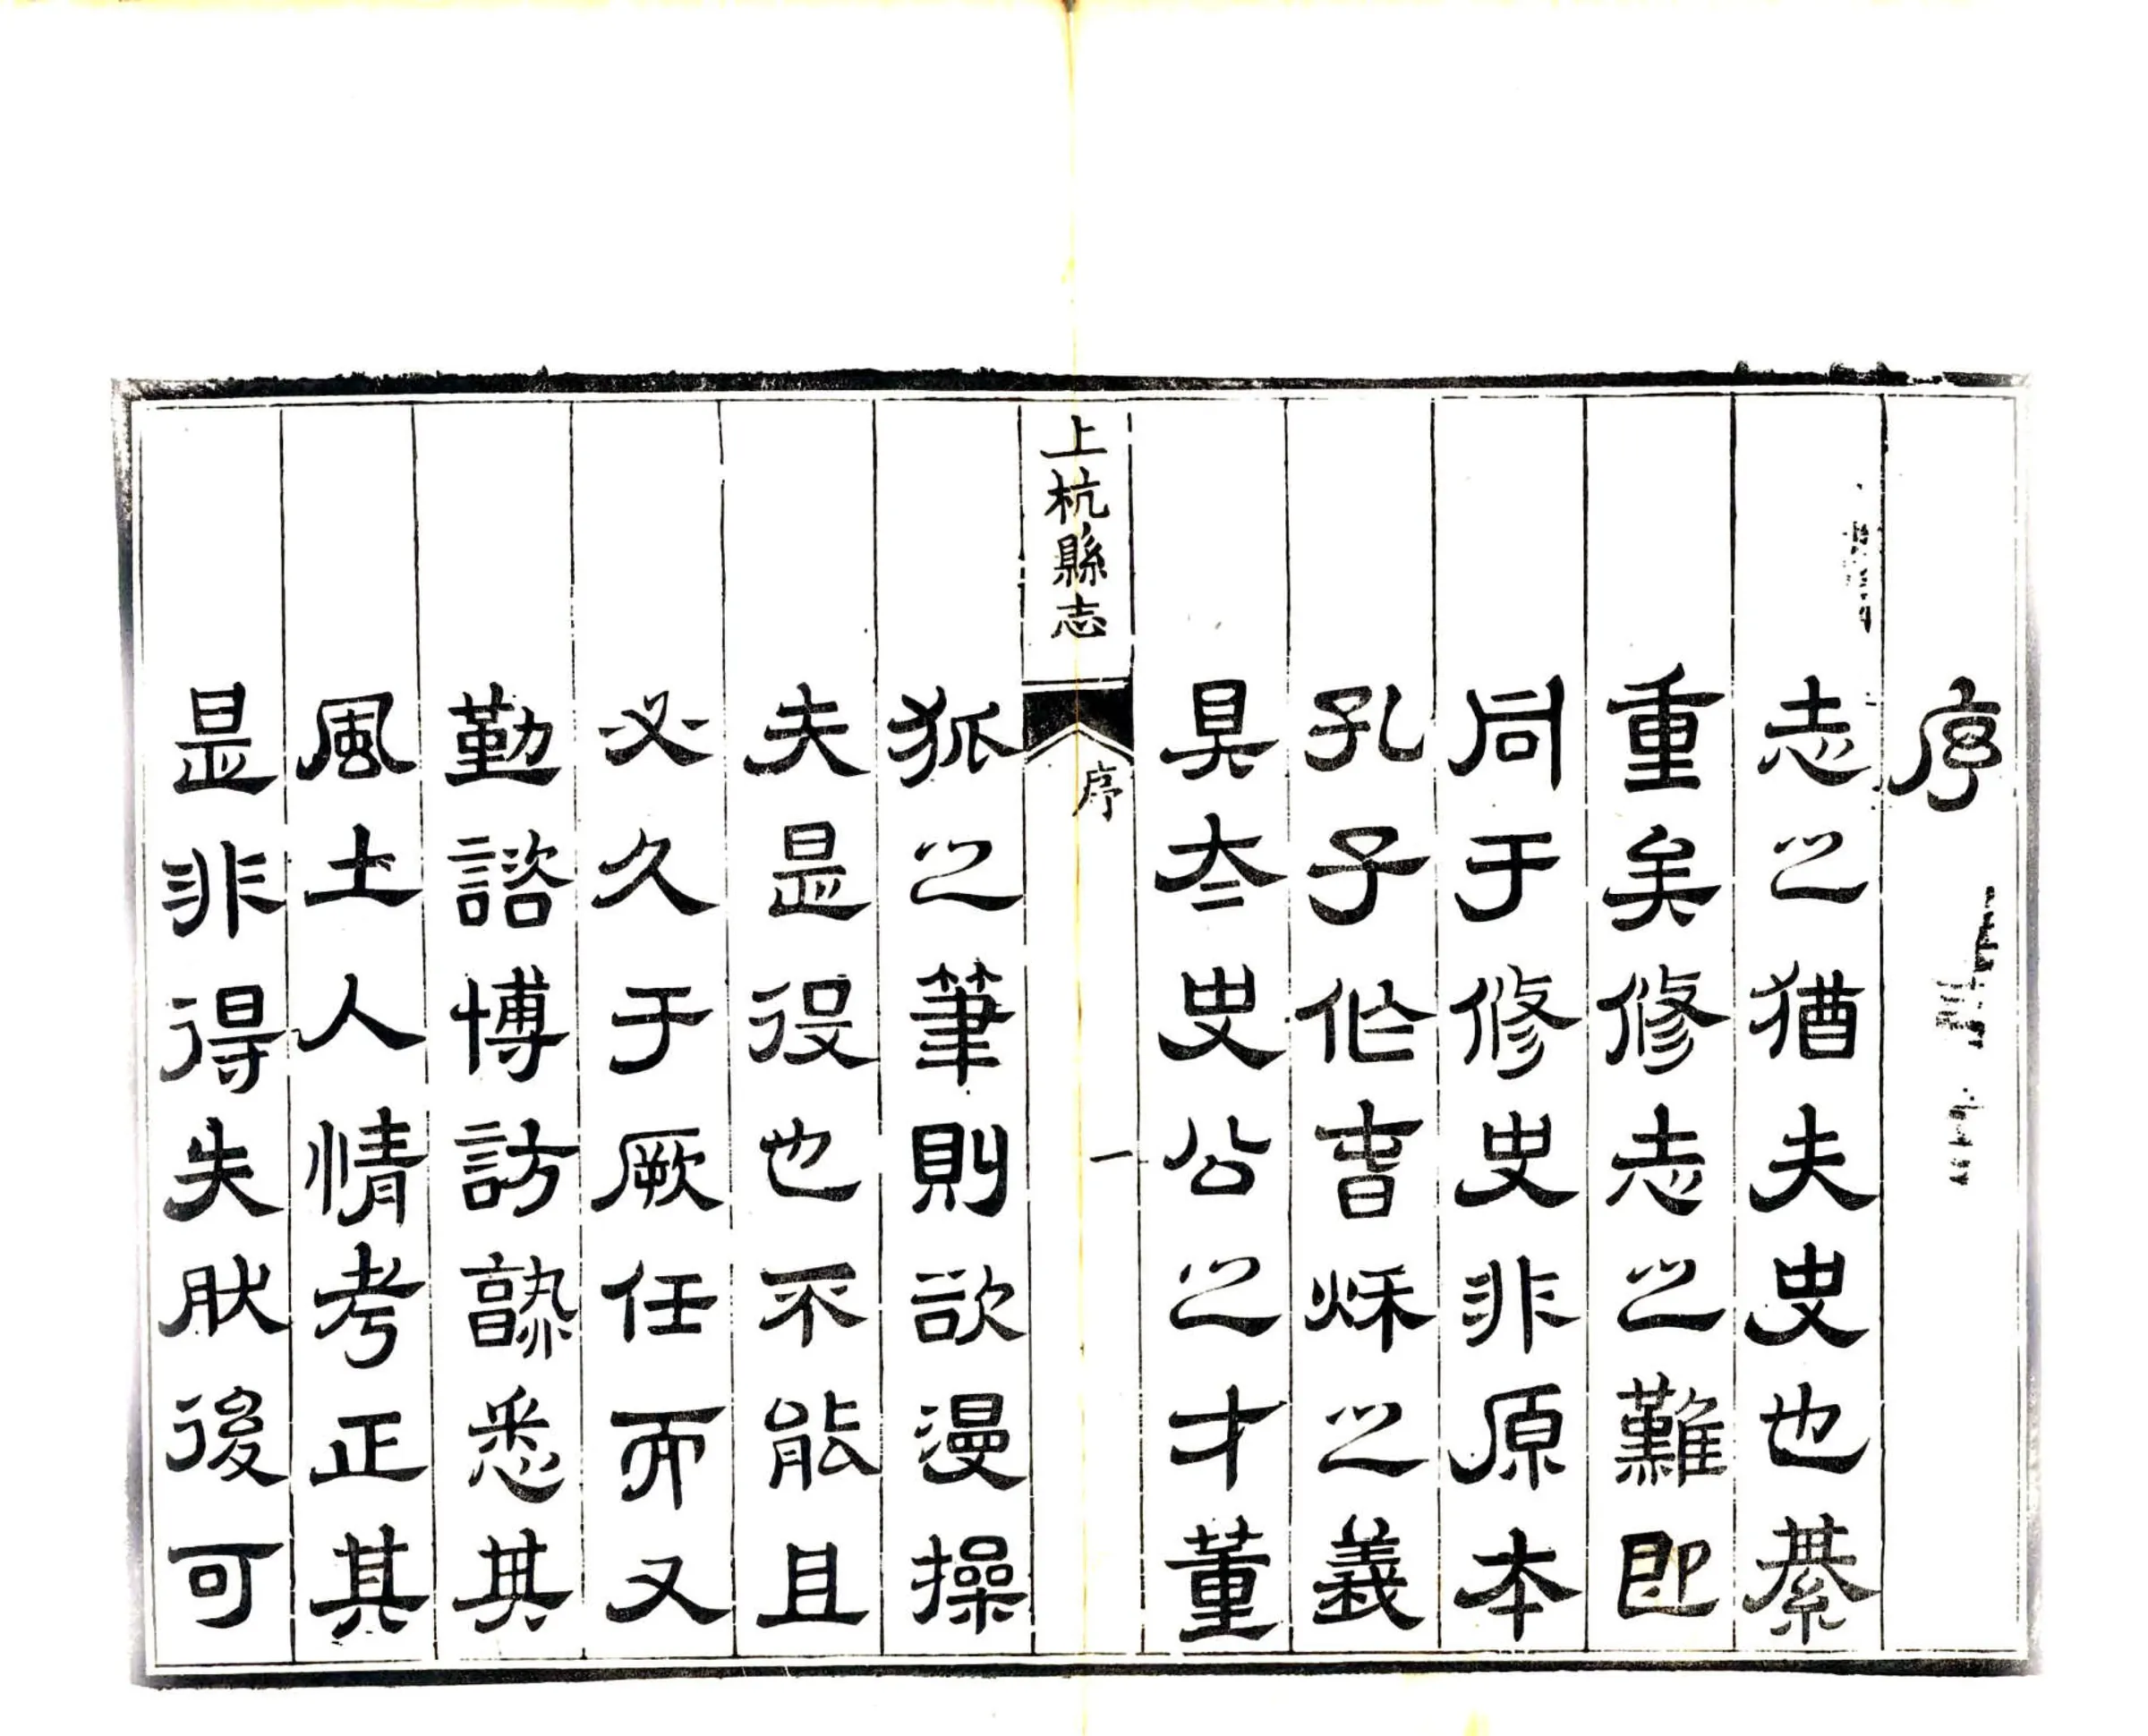 序
志之猶夫史也綦
重矣修志之難即
同于修史非原本
孔子作春秋之義
具太史公之才董
上杭縣志
序
一
狐之筆則欲漫操
夫是役也不能且
必久于厥任而又
勤諮博訪熟悉其
風土人情考正其
是非得失狀後可